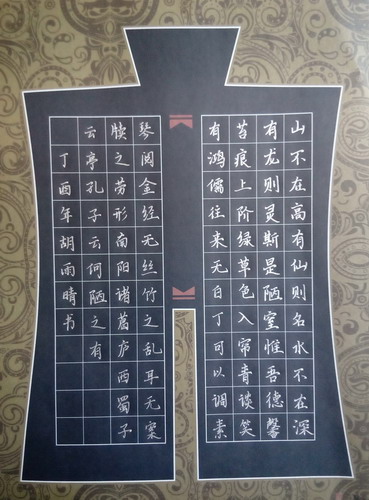 山不在高有仙则名水不在深
有龙则灵斯是陋室惟吾德馨
苔痕上阶绿草色入帘青谈笑
有鸿儒往来无白丁可以调素
琴阅金经无丝竹之乱耳无案
牍之劳形南阳诸葛庐西蜀子
云亭孔子云何陋之有
丁酉年胡雨晴书